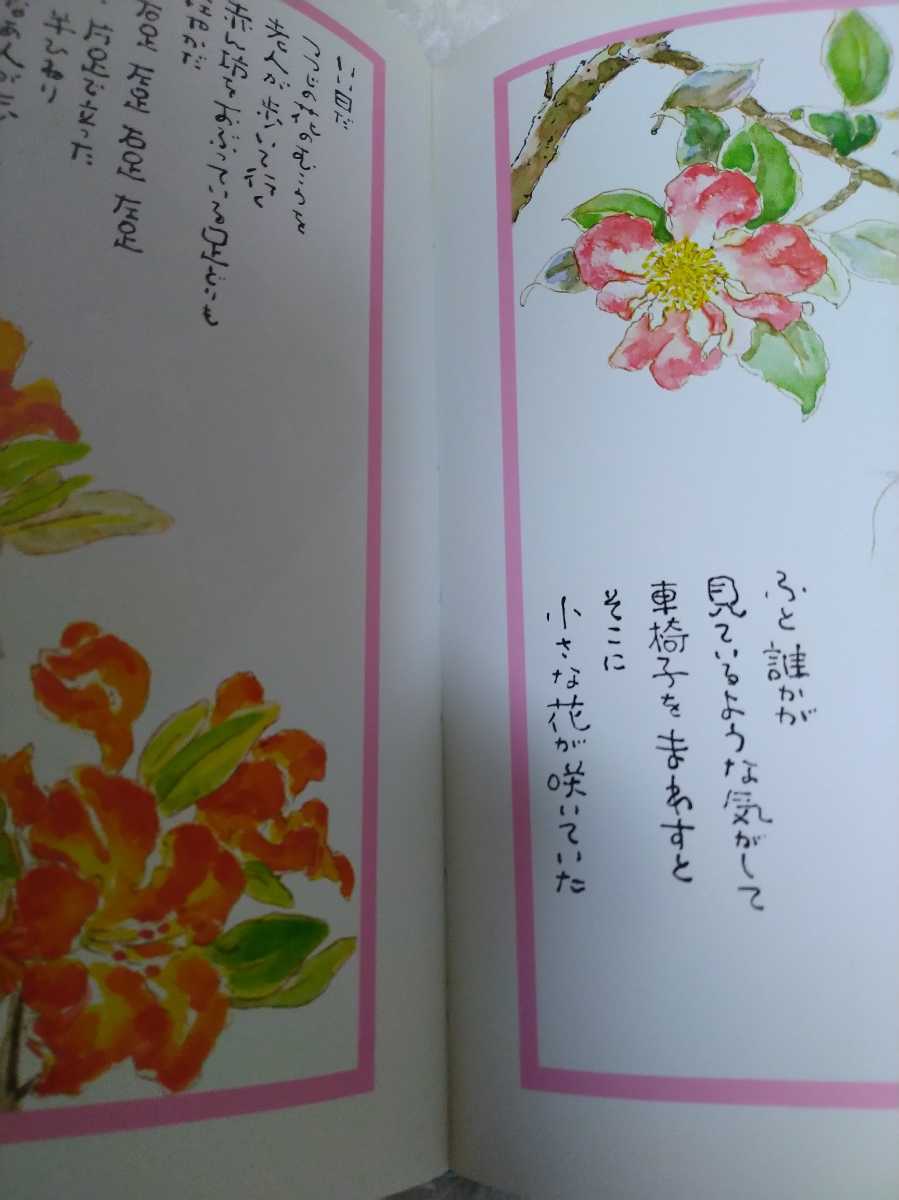 ふと 誰かが
見ているような気がして
車椅子をまわすと
そこに
小さな花が咲いていた
いい日だ
つつじの花のむこうを
老人が歩いている
赤ん坊をおぶっている足どりも
右足 左足 右足 左足
片足で立った